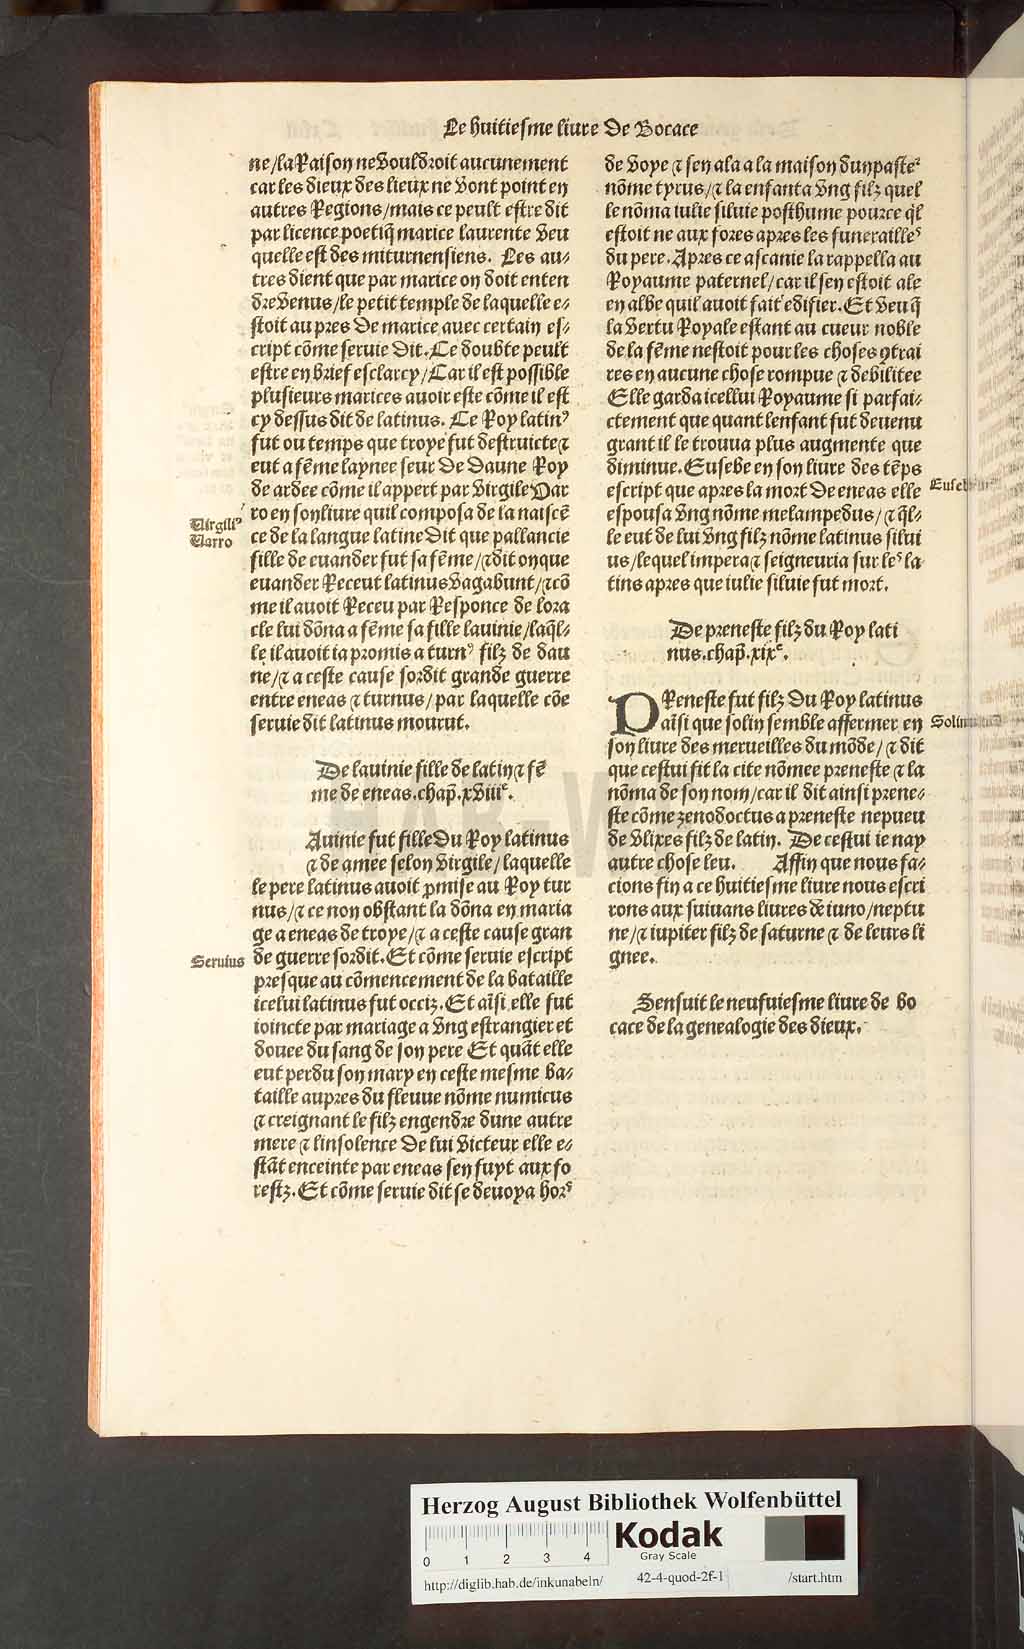 Le huitiesme liure De Bocace
ne/la Raison ne vouldroit aucunement
car les dieux des lieux ne vont point en
autres Regions/mais ce peult estre dit
par licence poetiq̃ marice laurente veu
quelle est des miturnensiens. Les au⸗
tres dient que par marice on doit enten
dre venus/le petit temple de laquelle e⸗
stoit au pres De marice auec certain es⸗
cript cõme seruie dit. Ce doubte peult
estre en brief esclarcy/Car il est possible
plusieurs marices auoir este cõme il est
cy dessus dit de latinus. Ce Roy latinꝰ
fut ou temps que troye fut destruicte ⁊
eut a fẽme laynee seur De Daune Roy
de ardee cõme il appert par virgile Var
ro en son liure quil composa de la naiscẽ
ce de la langue latine Dit que pallancie
fille de euander fut sa fẽme/⁊ dit on que
euander Receut latinus vagabunt/⁊ cõ
me il auoit Receu par Responce de lora
cle lui dõna a fẽme sa fille lauinie/laq̃l⸗
le il auoit ia promis a turnꝰ filz de dau
ne/⁊ a ceste cause sordit grande guerre
entre eneas ⁊ turnus/par laquelle cõe
seruie dit latinus mourut.
Virgiliꝰ
Varro
De lauinie fille de latin ⁊ fẽ
me de eneas.chap̃.xviiiᵉ.
Auinie fut fille Du Roy latinus
⁊ de amee selon virgile/laquelle
le pere latinus auoit ꝓmise au Roy tur
nus/⁊ ce non obstant la dõna en maria
ge a eneas de troye/⁊ a ceste cause gran
de guerre sordit. Et cõme seruie escript
presque au cõmencement de la bataille
icelui latinus fut occiz. Et aĩsi elle fut
ioincte par mariage a vng estrangier et
douee du sang de son pere Et quãt elle
eut perdu son mary en ceste mesme ba⸗
taille aupres du fleuue nõme numicus
⁊ creignant le filz engendre dune autre
mere ⁊ linsolence De lui victeur elle e⸗
stãt enceinte par eneas sen fuyt aux fo
restz. Et cõme seruie dit se deuoya horˢ
Seruius
de voye ⁊ sen ala a la maison dun pasteᷣ
nõme tyrus/⁊ la enfanta vng filz quel
le nõma iulie siluie posthume pource q̃l
estoit ne aux fores apres les funerailleˢ
du pere. Apres ce ascanie la rappella au
Royaume paternel/car il sen estoit ale
en albe quil auoit fait edifier. Et veu q̃
la vertu Royale estant au cueur noble
de la fẽme nestoit pour les choses ꝯtrai
res en aucune chose rompue ⁊ debilitee
Elle garda icellui Royaume si parfai⸗
ctement que quant lenfant fut deuenu
grant il le trouua plus augmente que
diminue. Eusebe en son liure des tẽps
escript que apres la mort De eneas elle
espousa vng nõme melampedus/⁊ q̃l⸗
le eut de lui vng filz nõme latinus silui
us/lequel impera ⁊ seigneuria sur leˢ la⸗
tins apres que iulie siluie fut mort.
De preneste filz du Roy lati
nus.chap̃.xixᵉ.
PReneste fut filz Du Roy latinus
aĩsi que solin semble affermer en
son liure des merueilles du mõde/⁊ dit
que cestui fit la cite nõmee preneste ⁊ la
nõma de son nom/car il dit ainsi prene⸗
ste cõme zenodoctus a preneste nepueu
de vlixes filz de latin. De cestui ie nay
autre chose leu. Affin que nous fa⸗
cions fin a ce huitiesme liure nous escri
rons aux suiuans liures de iuno/neptu
ne/⁊ iupiter filz de saturne ⁊ de leurs li
gnee.
Sensuit le neufuiesme liure de Bo
cace de la genealogie des dieux.
Herzog August Bibliothek Wolfenbüttel
0 1 2 3 4
Kodak
Gray Scale
http://diglib.hab.de/inkunabeln/ 42-4-quod-2f-1 /start.htm